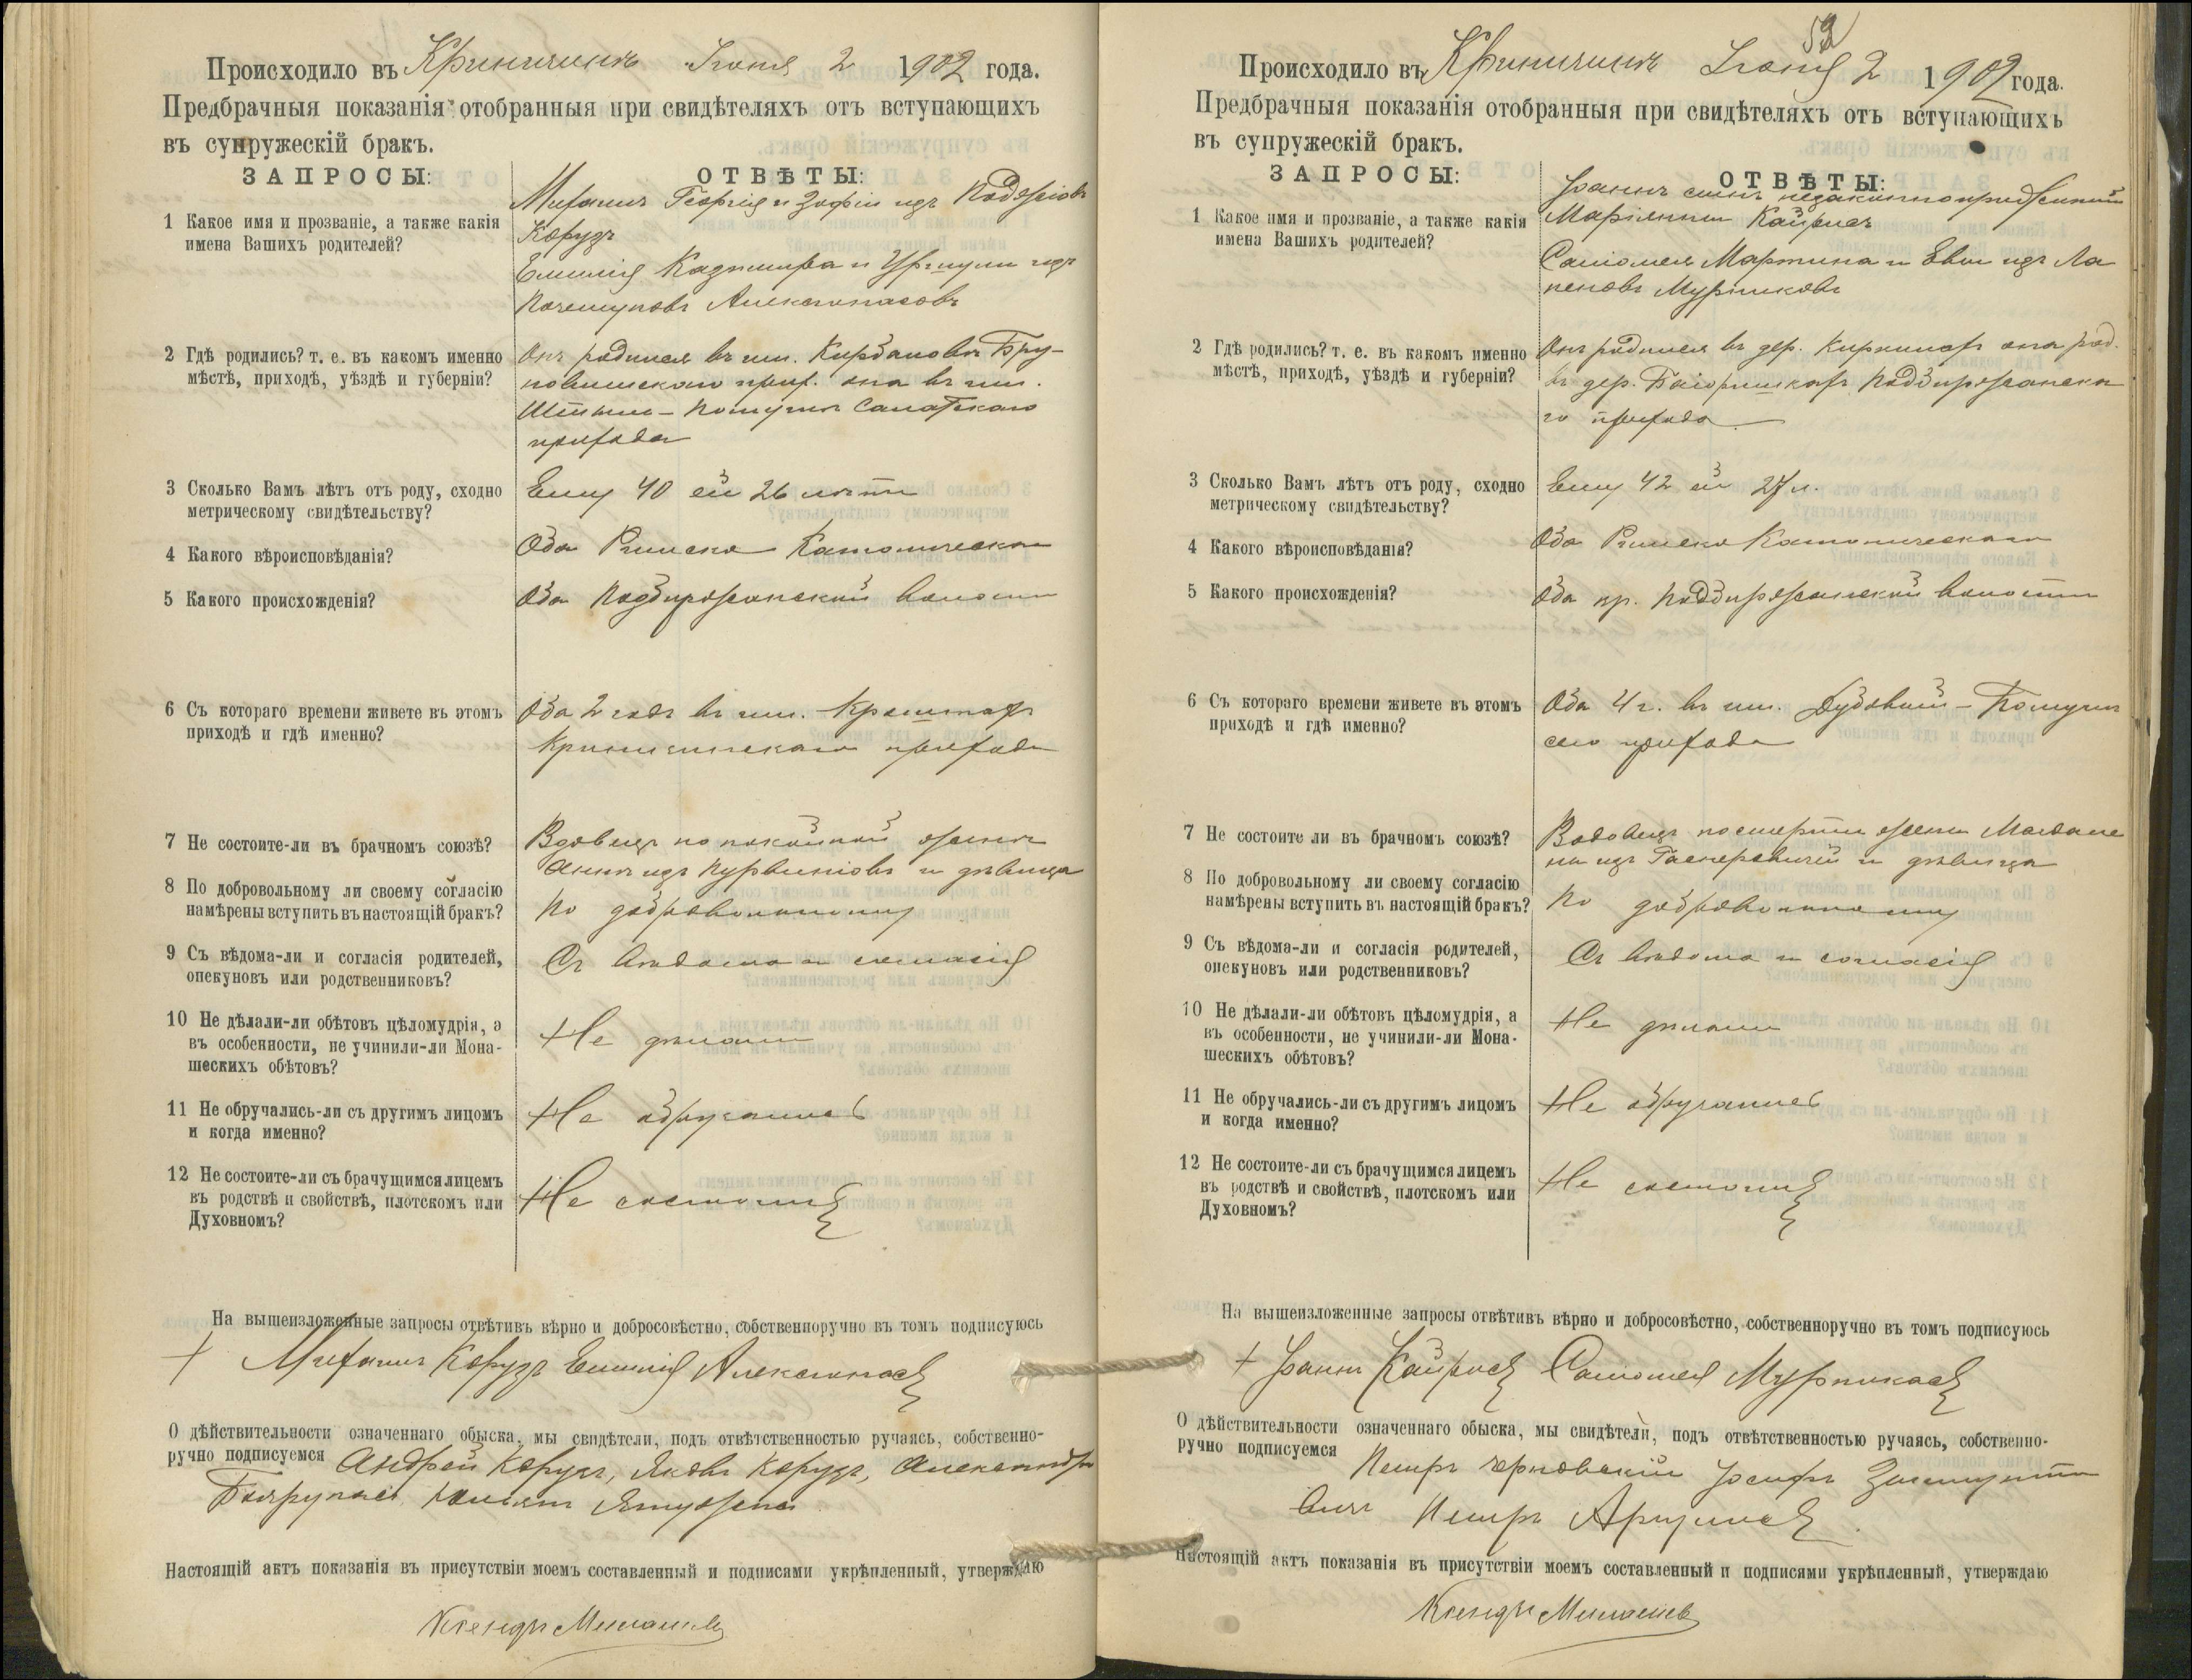 Происходило въ Криничинъ Іюня 2 1902 года.
Предбрачныя показанія отобранныя при свидѣтеляхъ отъ вступающихъ
въ супружескій бракъ.
ЗАПРОСЫ:
ОТВѢТЫ:
1 Какое имя и прозваніе, а также какія
имена Вашихъ родителей?
Георгія и Зофіи изъ
Корузъ
Емилія Казимира и Уршули изъ
2 Гдѣ родились? т. е. въ какомъ именно
мѣстѣ, приходѣ, уѣздѣ и губерніи?
Онъ родился въ им. Бру-
прих. она въ им.
прихода
3 Сколько Вамъ лѣтъ отъ роду, сходно
метрическому свидѣтельству?
Ему 40 ей 26 лѣтъ
4 Какого вѣроисповѣданія?
Оба Римско Католическаго
5 Какого происхожденія?
Оба Подбиржанской волости
6 Съ котораго времени живете въ этомъ
приходѣ и гдѣ именно?
Оба 2 года въ им.
прихода
7 Не состоите-ли въ брачномъ союзѣ?
Вдовецъ по покойной женѣ
Аннѣ изъ и дѣвица
8 По добровольному ли своему согласію
намѣрены вступить въ настоящій бракъ?
По добровольному
9 Съ вѣдома-ли и согласія родителей,
опекуновъ или родственниковъ?
Съ вѣдома и согласія
10 Не дѣлали-ли обѣтовъ цѣломудрія, а
въ особенности, не учинили-ли Мона-
шескихъ обѣтовъ?
Не дѣлали
11 Не обручались-ли съ другимъ лицомъ
и когда именно?
Не обручались
12 Не состоите-ли съ брачущимся лицемъ
въ родствѣ и свойствѣ, плотскомъ или
Духовномъ?
Не состоимъ
На вышеизложенные запросы отвѣтивъ вѣрно и добросовѣстно, собственноручно въ томъ подписуюсь
+ Корузъ Емилія
О дѣйствительности означеннаго обыска, мы свидѣтели, подъ отвѣтственностью ручаясь, собственно-
ручно подписуемся Андрей Корузъ, Яковъ Корузъ, Александръ
Настоящій актъ показанія въ присутствіи моемъ составленный и подписами укрѣпленный, утверждаю
Ксендзъ
Происходило въ Криничинъ Іюня 2 1902 года.
Предбрачныя показанія отобранныя при свидѣтеляхъ отъ вступающихъ
въ супружескій бракъ.
ЗАПРОСЫ:
ОТВѢТЫ:
1 Какое имя и прозваніе, а также какія
имена Вашихъ родителей?
Іоаннъ сынъ
Маріянны
Саломея Мартина и Евы изъ Ла
2 Гдѣ родились? т. е. въ какомъ именно
мѣстѣ, приходѣ, уѣздѣ и губерніи?
Онъ родился въ дер. она род.
въ дер. Подбиржанска
го прихода
3 Сколько Вамъ лѣтъ отъ роду, сходно
метрическому свидѣтельству?
Ему 42 ей 27 л.
4 Какого вѣроисповѣданія?
Оба Римско Католическаго
5 Какого происхожденія?
Оба кр. Подбиржанской волости
6 Съ котораго времени живете въ этомъ
приходѣ и гдѣ именно?
Оба 4 г. въ им.
сего прихода
7 Не состоите ли въ брачномъ союзѣ?
Вдовецъ по смерти жены Магдале
ны изъ и дѣвица
8 По добровольному ли своему согласію
намѣрены вступить въ настоящій бракъ?
По добровольному
9 Съ вѣдома-ли и согласія родителей,
опекуновъ или родственниковъ?
Съ вѣдома и согласія
10 Не дѣлали-ли обѣтовъ цѣломудрія, а
въ особенности, не учинили-ли Мона-
шескихъ обѣтовъ?
Не дѣлали
11 Не обручались-ли съ другимъ лицомъ
и когда именно?
Не обручались
12 Не состоите-ли съ брачущимся лицемъ
въ родствѣ и свойствѣ, плотскомъ или
Духовномъ?
Не состоимъ
На вышеизложенные запросы отвѣтивъ вѣрно и добросовѣстно, собственноручно въ томъ подписуюсь
+ Іоаннъ Саломея
О дѣйствительности означеннаго обыска, мы свидѣтели, подъ отвѣтственностью ручаясь, собственно-
ручно подписуемся Петръ Іосифъ
Петръ
Настоящій актъ показанія въ присутствіи моемъ составленный и подписами укрѣпленный, утверждаю
Ксендзъ